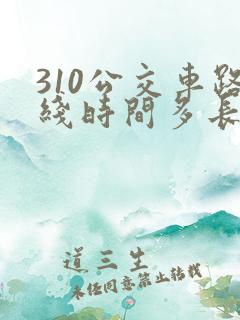 310公交車路
綫時間多長
道三生
未经同意禁止转载